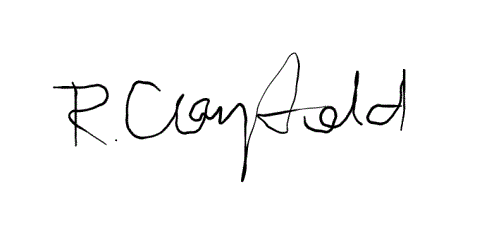 R. Clayfield